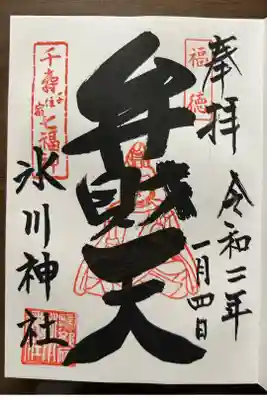 奉拝
福徳
令和二年
一月四日
弁財天
千寿七福
千住宿
氷川神社